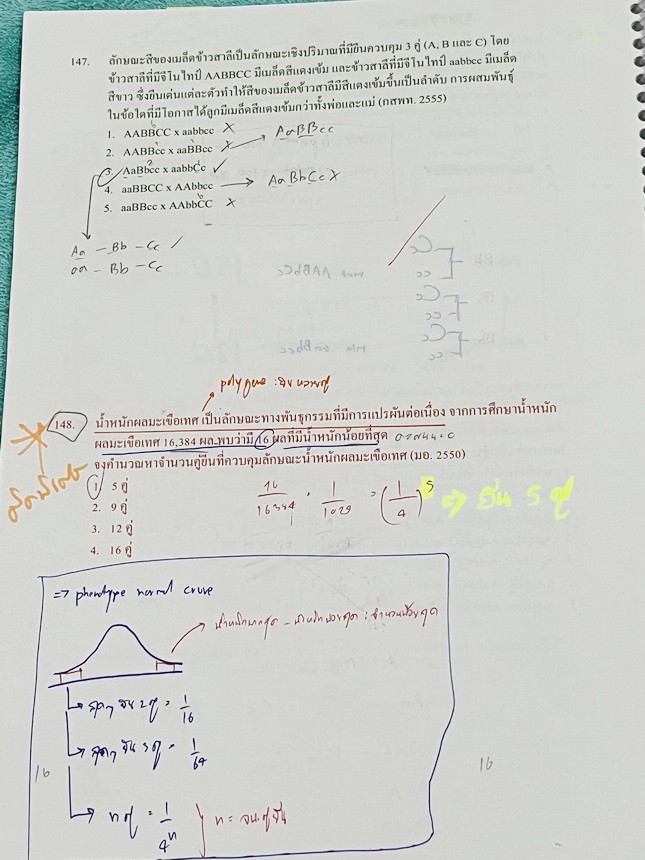 147. ลักษณะสีของเมล็ดข้าวสาลีเป็นลักษณะเชิงปริมาณที่มียีนควบคุม 3 คู่ (A, B และ C) โดย
ข้าวสาลีที่มีจีโนไทป์ AABBCC มีเมล็ดสีแดงเข้ม และข้าวสาลีที่มีจีโนไทป์ aabbcc มีเมล็ด
สีขาว ซึ่งยีนเด่นแต่ละตัวทำให้สีของเมล็ดข้าวสาลีมีสีแดงเข้มขึ้นเป็นลำดับ การผสมพันธุ์
ในข้อใดที่มีโอกาสได้ลูกมีเมล็ดสีแดงเข้มกว่าทั้งพ่อและแม่ (กสพท. 2555)
1. AABBCC x aabbcc X AaBBcc
2. AABBcc x aaBBcc X
3. AaBbcc x aabbCc ✓
4. aaBBCC x AAbbcc → AaBbCc X
5. aaBBcc x AAbbCC X
Aa - Bb - Cc ✓
aa - Bb - Cc
polygene : ยีนหลายคู่
148. น้ำหนักผลมะเขือเทศ เป็นลักษณะทางพันธุกรรมที่มีการแปรผันต่อเนื่อง จากการศึกษาน้ำหนัก
ผลมะเขือเทศ 16,384 ผล พบว่ามี 16 ผลที่มีน้ำหนักน้อยที่สุด
จงคำนวณหาจำนวนคู่ยีนที่ควบคุมลักษณะน้ำหนักผลมะเขือเทศ (มอ. 2550)
1. 5 คู่
2. 9 คู่
3. 12 คู่
4. 16 คู่
16/16384 = 1/1024 = (1/4)^5 ⇒ ยีน 5 คู่
=> phenotype normal curve
สุดๆ ยีน 2 คู่ = 1/16
สุดๆ ยีน 3 คู่ = 1/64
n คู่ = 1/4^n n = จน.คู่ยีน
16
16